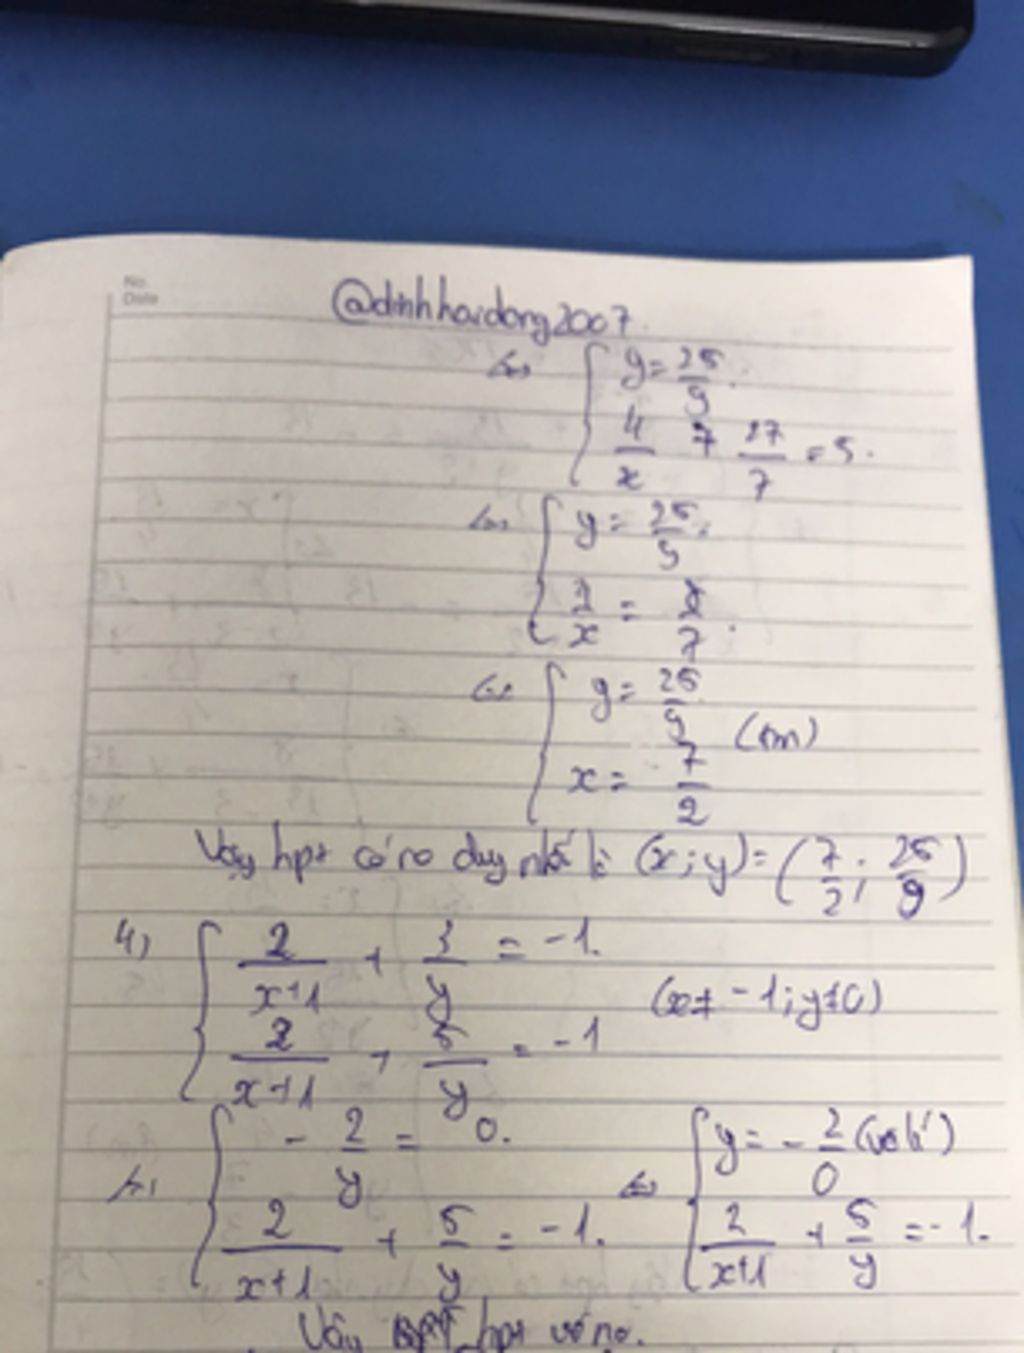 No.
Date
@dinhhaidong2007.
<=> { y = 25/9.
4/x + 27/7 = 5.
<=> { y = 25/9.
1/x = 2/7.
<=> { y = 25/9
x = 7/2 (tm)
Vậy hpt có no duy nhất là (x; y) = (7/2; 25/9)
4) { 2/(x+1) + 3/y = -1.
2/(x+1) + 5/y = -1
(x ≠ -1; y ≠ 0)
<=> { -2/y = 0.
2/(x+1) + 5/y = -1.
<=> { y = -2/0 (vô lí)
2/(x+1) + 5/y = -1.
Vậy hpt vô no.